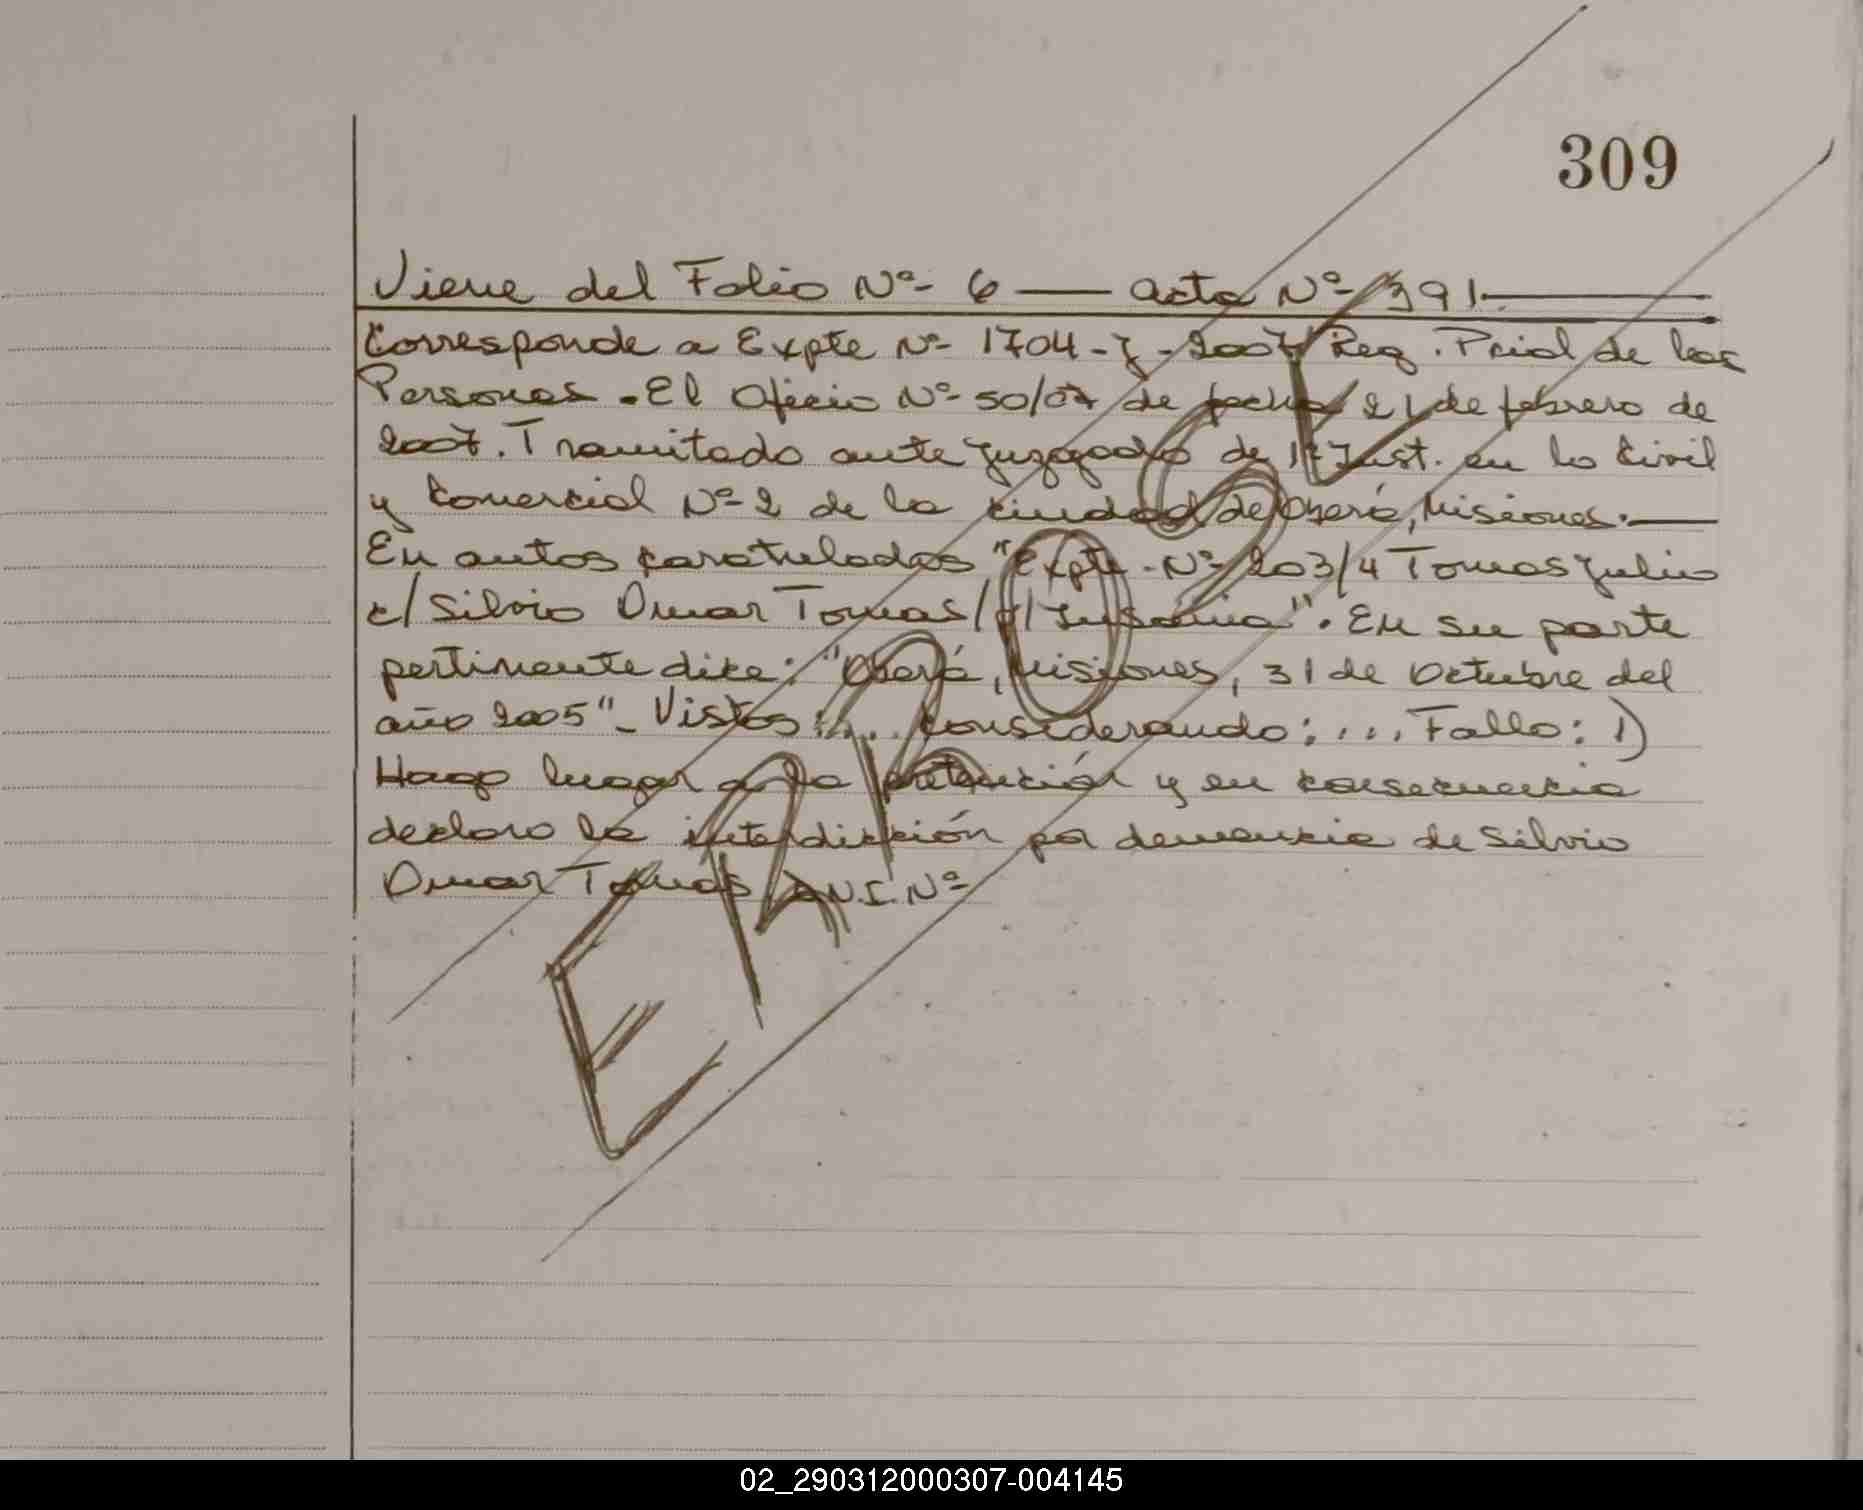 309
Viene del Folio Nº- 6 — acta Nº- 391.
Corresponde a Expte Nº- 1704-J-2007 Reg. Pcial de las
Personas. El Oficio Nº- 50/07 de fecha 21 de febrero de
2007. Tramitado ante Juzgado de 1ª Inst. en lo Civil
y Comercial Nº-2 de la ciudad de Oberá, Misiones.—
En autos caratulados "Expte. Nº- 203/4 Tomas Julio
c/ Silvio Omar Tomas/ s/ Insania". En su parte
pertinente dice: "Oberá, Misiones, 31 de Octubre del
año 2005"- Vistos:... considerando:... Fallo: 1)
Hago lugar a la pretención y en consecuencia
declaro la interdicción por demencia de Silvio
Omar Tomas D.N.I. Nº-
ERROSE
02_290312000307-004145